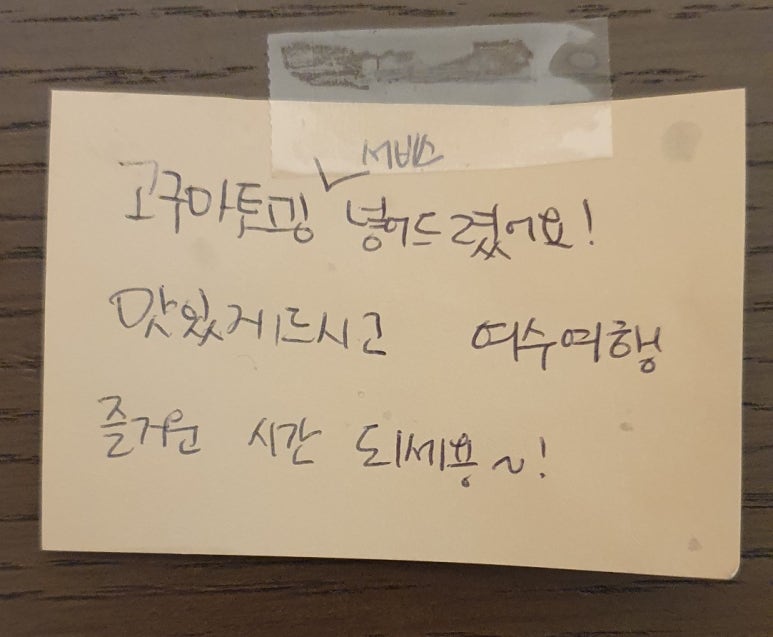 고구마토핑 서비스 넣어드렸어요!
맛있게드시고 여수여행
즐거운 시간 되세용~!